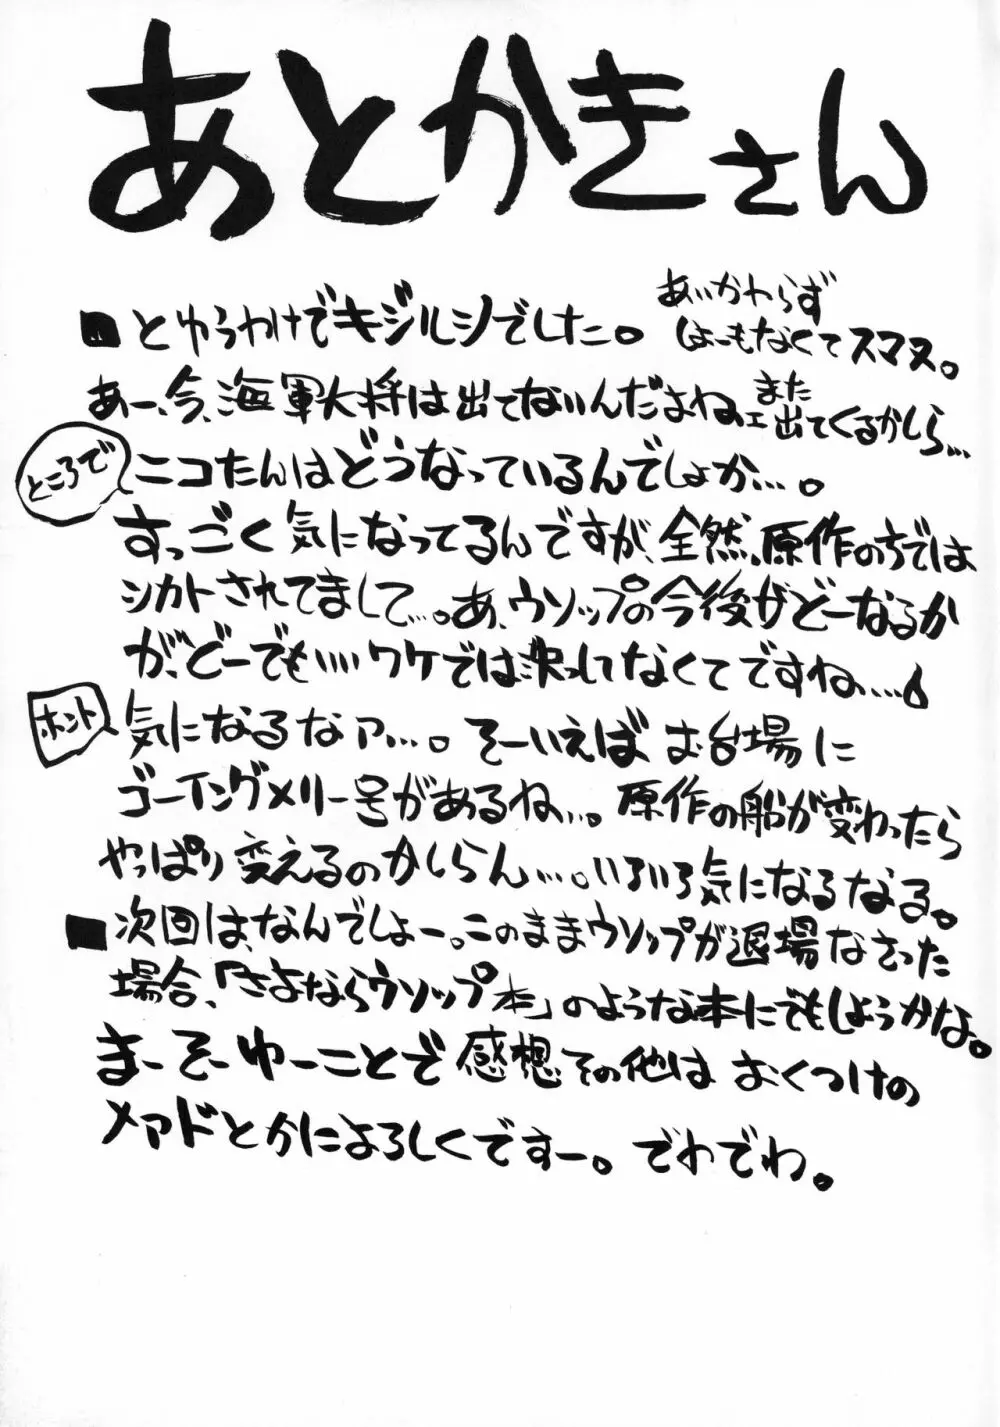 あとかきさん
■とゆうわけでキジルシでした。
あいかわらず
しょーもなくてスマヌ。
あー、今、海軍大将は出てないんだよね、
また
出てくるかしら…
ところで
ニコたんはどうなっているんでしょか…。
すっごく気になってるんですが、全然、原作の方では
シカトされてまして…。あ、ウソップの今後がどーなるか
が、どーでも……ワケでは決してなくてですね……
ホント
気になるなァ…。そーいえばお台場に
ゴーイングメリー号があるね…。原作の船が変わったら
やっぱり変えるのかしらん…。いろいろ気になるなる。
■次回は、なんでしょー。このままウソップが退場なさった
場合、「さよならウソップ本」のような本にでもしようかな。
まーそーゆーことで感想その他は おくつけの
メアドとかによろしくですー。でわでわ。